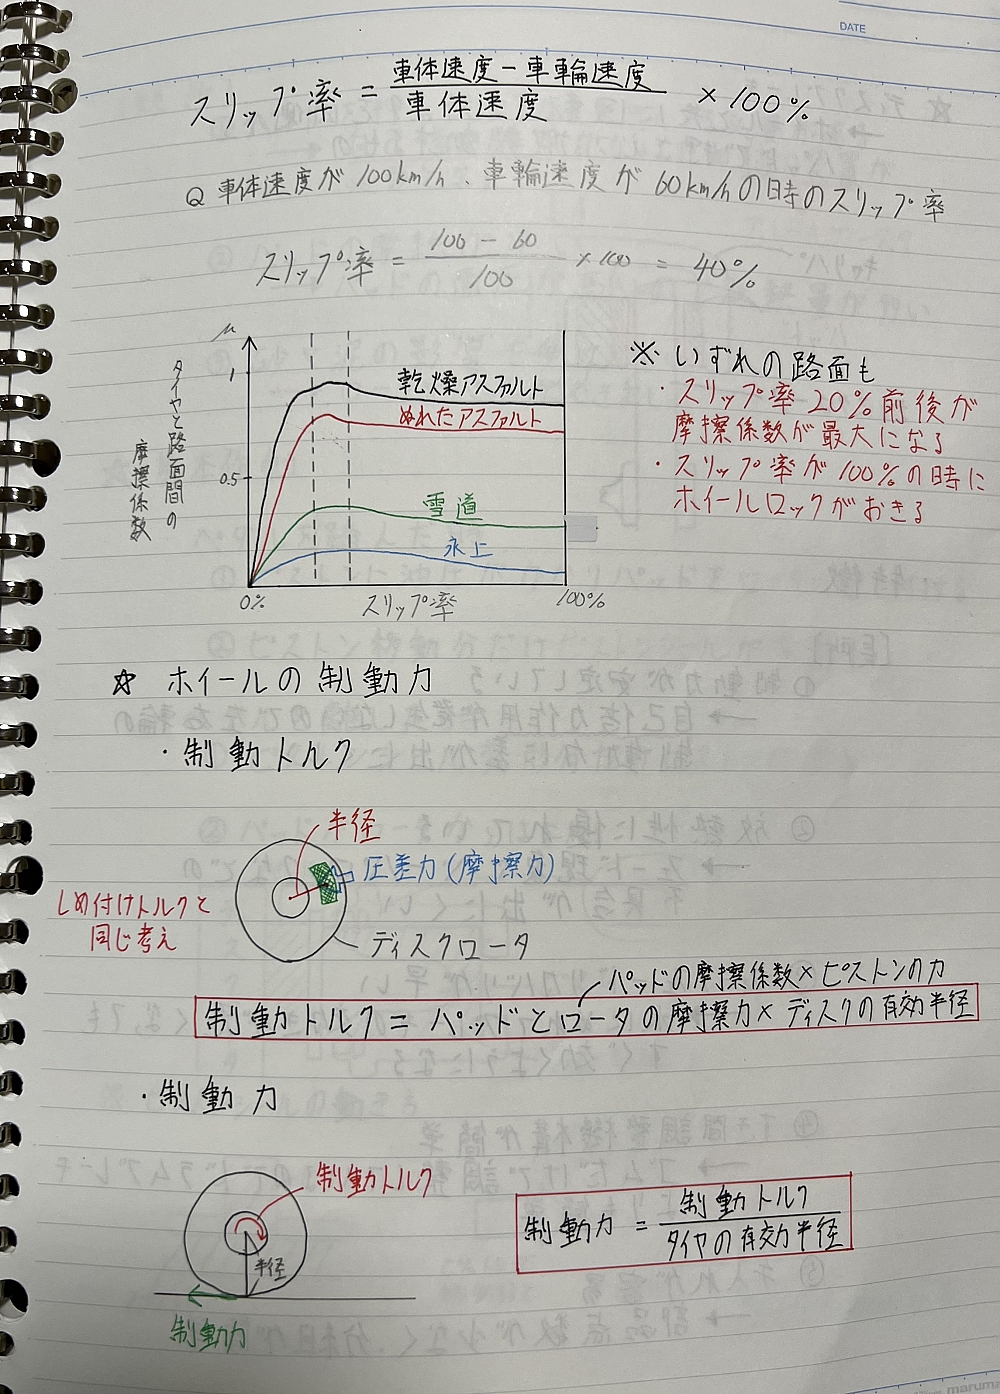 DATE
スリップ率 = 車体速度－車輪速度 / 車体速度 × 100%
Q 車体速度が 100km/h、車輪速度が 60km/hの時のスリップ率
スリップ率 = 100 － 60 / 100 × 100 = 40%
μ
タイヤと路面間の
摩擦係数
1
0.5
乾燥アスファルト
ぬれたアスファルト
雪道
氷上
0%
スリップ率
100%
※ いずれの路面も
・スリップ率 20%前後が
摩擦係数が最大になる
・スリップ率が100%の時に
ホイールロックがおきる
☆ ホイールの制動力
・制動トルク
半径
圧差力(摩擦力)
しめ付けトルクと
同じ考え
ディスクロータ
パッドの摩擦係数×ピストンの力
制動トルク = パッドとロータの摩擦力×ディスクの有効半径
・制動力
制動トルク
半径
制動力
制動力 = 制動トルク / タイヤの有効半径